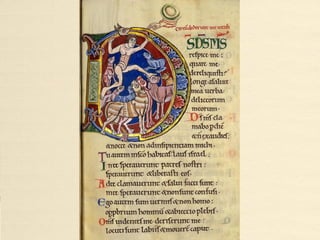 DS DS MS
respice me:
quare me
dereliquisti?
longe a salute
mea verba
delictorum
meorum.
Ds ms cla
mabo p die
& n exaudies:
& nocte & non ad insipientiam michi.
Tu aut in sco habitas laus isrl.
In te speraverunt patres nostri:
speraverunt & liberasti eos.
Ad te clamaverunt & salvi facti sunt:
in te speraverunt & non sunt confusi.
Ego autem sum vermis & non homo:
opprobrium hominu & abiectio plebis.
Oms videntes me deriserunt me:
locuti sunt labiis & moverunt caput.